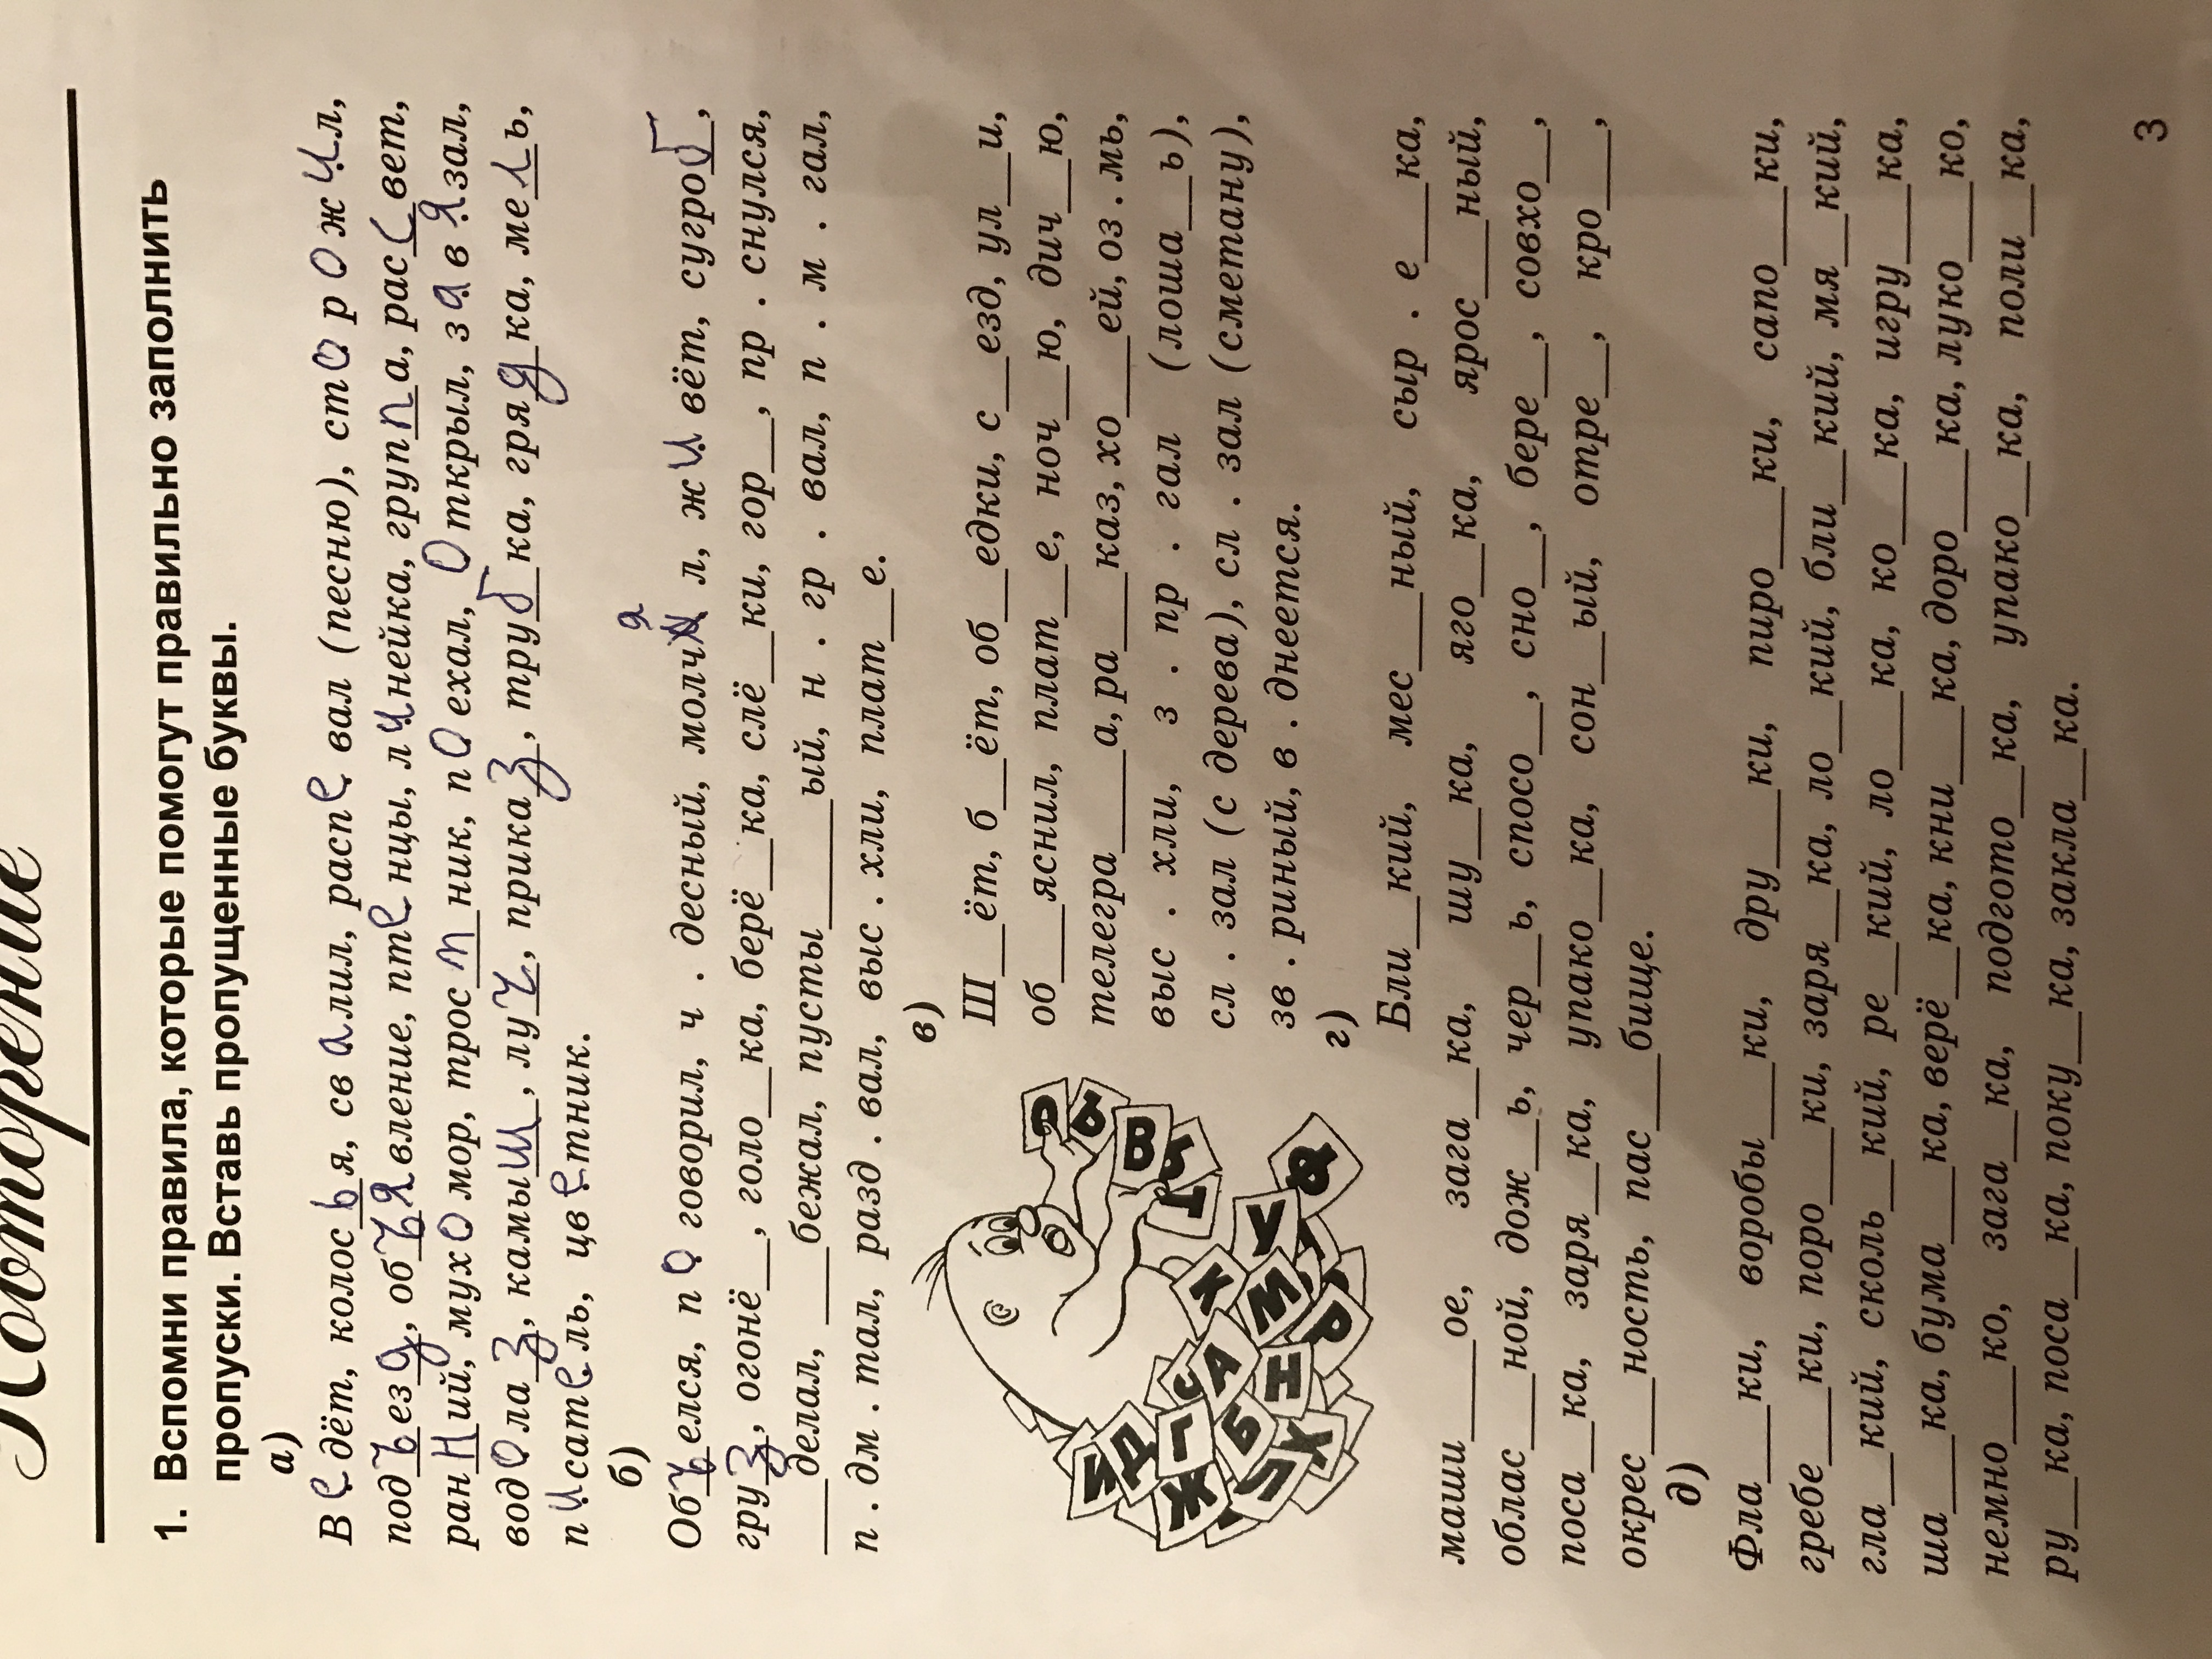 Повторение
1. Вспомни правила, которые помогут правильно заполнить
пропуски. Вставь пропущенные буквы.
а)
Ведёт, колосья, свалил, распевал (песню), сторожил,
подъезд, объявление, птенцы, линейка, группа, рассвет,
ранний, мухомор, тростник, поехал, открыл, завязал,
водолаз, камыш, луч, приказ, трубка, грядка, мель,
писатель, цветник.
б)
Объелся, поговорил, ч . десный, молчал, живёт, сугроб,
груз, огонё__, голо__ка, берё__ка, слё__ки, гор__, пр . снулся,
__делал, __бежал, пусты____ый, н . гр . вал, п . м . гал,
п . дм . тал, разд . вал, выс . хли, плат__е.
в)
Ш__ёт, б__ёт, об__едки, с__езд, ул__и,
об__яснил, плат__е, ноч__ю, дич__ю,
телегра____а, ра__каз, хо___ей, оз . мь,
выс . хли, з . пр . гал (лоша__ь),
сл . зал (с дерева), сл . зал (сметану),
зв . риный, в . днеется.
г)
Бли__кий, мес___ный, сыр . е___ка,
маши____ое, зага__ка, шу__ка, яго__ка, ярос__ный,
облас___ной, дож__ь, чер__ь, спосо__, сно__, бере__, совхо__,
поса__ка, заря__ка, упако__ка, сон__ый, отре__, кро___,
окрес___ность, пас___бище.
д)
Фла___ки, воробы___ки, дру___ки, пиро___ки, сапо___ки,
гребе___ки, поро___ки, заря__ка, ло__кий, бли__кий, мя__кий,
гла__кий, сколь__кий, ре__кий, ло___ка, ко___ка, игру___ка,
ша___ка, бума___ка, верё__ка, кни___ка, доро___ка, луко___ко,
немно___ко, зага__ка, подгото__ка, упако__ка, поли__ка,
ру__ка, поса__ка, поку__ка, закла__ка.
3
Э
Ы
В
Ь
Т
У
Ф
К
М
Р
А
С
Н
Б
Х
Л
Г
Д
И
Ж